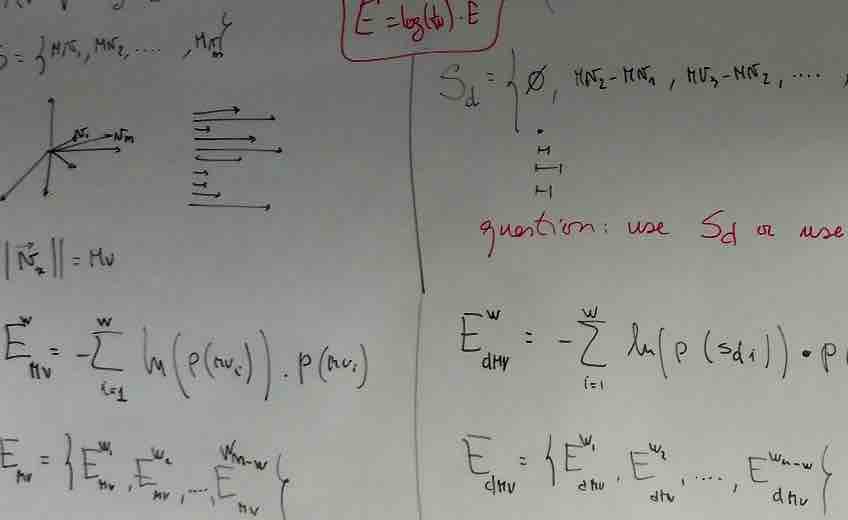 E = log(tw) · E
S = { MV₁, MV₂, ...., MVₘ }
V₁ Vₘ
||V⃗ₓ|| = MV
E^w_MV = -∑_{i=1}^{w} ln(p(mvᵢ)) . p(mvᵢ)
E_MV = { E^{w₁}_MV, E^{w₂}_MV, ..., E^{w_{n-w}}_MV }
S_d = { ∅, MV₂-MV₁, MV₃-MV₂, ....,
question: use S_d or use
E^w_dMV = -∑_{i=1}^{w} ln(p(sdᵢ)) • p
E_dMV = { E^{w₁}_dMV, E^{w₂}_dMV, ...., E^{w_{n-w}}_dMV }